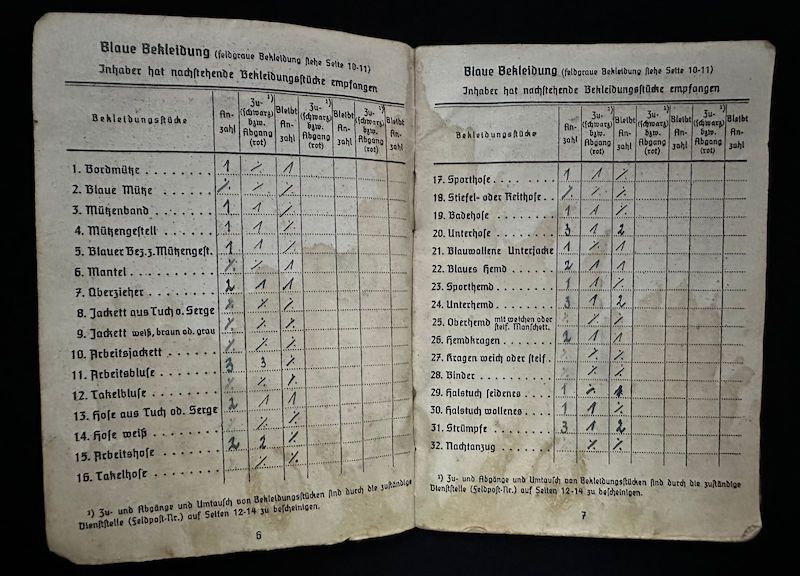 Blaue Bekleidung (feldgraue Bekleidung siehe Seite 10-11)
Inhaber hat nachstehende Bekleidungsstücke empfangen
Bekleidungsstücke An-zahl Zu- ¹) (schwarz) bzw. Abgang (rot) Bleibt An-zahl Zu- ¹) (schwarz) bzw. Abgang (rot) Bleibt An-zahl Zu- ¹) (schwarz) bzw. Abgang (rot) Bleibt An-zahl
1. Bordmütze . . . . . . . 1 % 1
2. Blaue Mütze . . . . . . % % %
3. Mützenband . . . . . . 1 1 %
4. Mützengestell . . . . . 1 1 %
5. Blauer Bez. z. Mützengest. 1 1 %
6. Mantel . . . . . . . . % % 1
7. Überzieher . . . . . . 2 1 1
8. Jackett aus Tuch o. Serge % % %
9. Jackett weiß, braun od. grau % % %
10. Arbeitsjackett . . . . . . % % %
11. Arbeitsbluse . . . . . . 3 3 %
12. Takelbluse . . . . . . % % %
13. Hose aus Tuch od. Serge 2 1 1
14. Hose weiß . . . . . . . % %
15. Arbeitshose . . . . . . 2 2 %
16. Takelhose . . . . . . . % %
¹) Zu- und Abgänge und Umtausch von Bekleidungsstücken sind durch die zuständige
Dienststelle (Feldpost-Nr.) auf Seiten 12-14 zu bescheinigen.
6
Blaue Bekleidung (feldgraue Bekleidung siehe Seite 10-11)
Inhaber hat nachstehende Bekleidungsstücke empfangen
Bekleidungsstücke An-zahl Zu- ¹) (schwarz) bzw. Abgang (rot) Bleibt An-zahl Zu- ¹) (schwarz) bzw. Abgang (rot) Bleibt An-zahl Zu- ¹) (schwarz) bzw. Abgang (rot) Bleibt An-zahl
17. Sporthose . . . . . . . 1 1 %
18. Stiefel- oder Reithose . . % % %
19. Badehose . . . . . . . 1 1 %
20. Unterhose . . . . . . . 3 1 2
21. Blauwollene Unterjacke 1 % 1
22. Blaues Hemd . . . . . . 2 1 1
23. Sporthemd . . . . . . . 1 1 %
24. Unterhemd . . . . . . . 3 1 2
25. Oberhemd mit weichen oder steif. Manschett. % %
26. Hemdkragen . . . . . . 2 1 1
27. Kragen weich oder steif . % %
28. Binder . . . . . . . . % %
29. Halstuch seidenes . . . . 1 % 1
30. Halstuch wollenes . . . . 1 1 %
31. Strümpfe . . . . . . . 3 1 2
32. Nachtanzug . . . . . . % %
¹) Zu- und Abgänge und Umtausch von Bekleidungsstücken sind durch die zuständige
Dienststelle (Feldpost-Nr.) auf Seiten 12-14 zu bescheinigen.
7